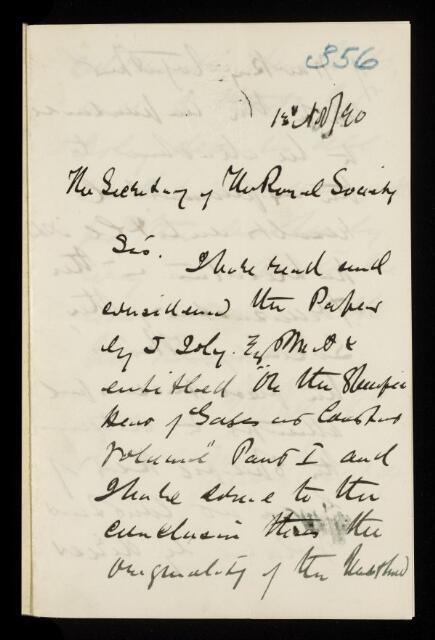 356
Nov/90
The Secretary of The Royal Society
Sir. I have read and
considered the Paper
by J Joly. Esq M.A &
entitled "On the Specific
Heat of Gases at Constant
Volume" Part I and
I have come to the
conclusion that the
originality of the Method